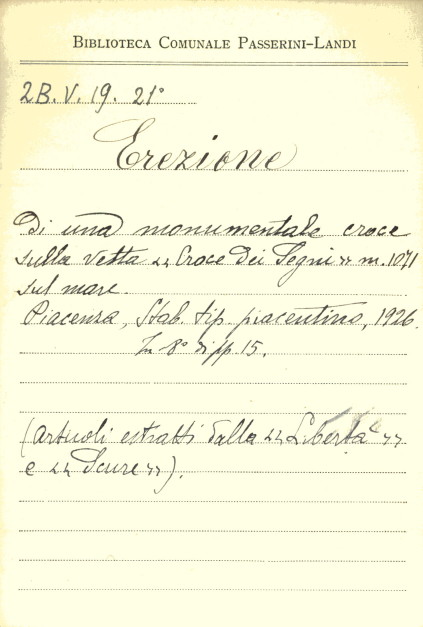 BIBLIOTECA COMUNALE PASSERINI-LANDI
2B.V.19. 21°
Erezione
Di una monumentale croce
sulla vetta "Croce dei Segni" m. 1071
sul mare.
Piacenza, Stab. tip. piacentino, 1926.
In 8° di pp. 15.
(articoli estratti dalla "Libertà"
e "Scure").